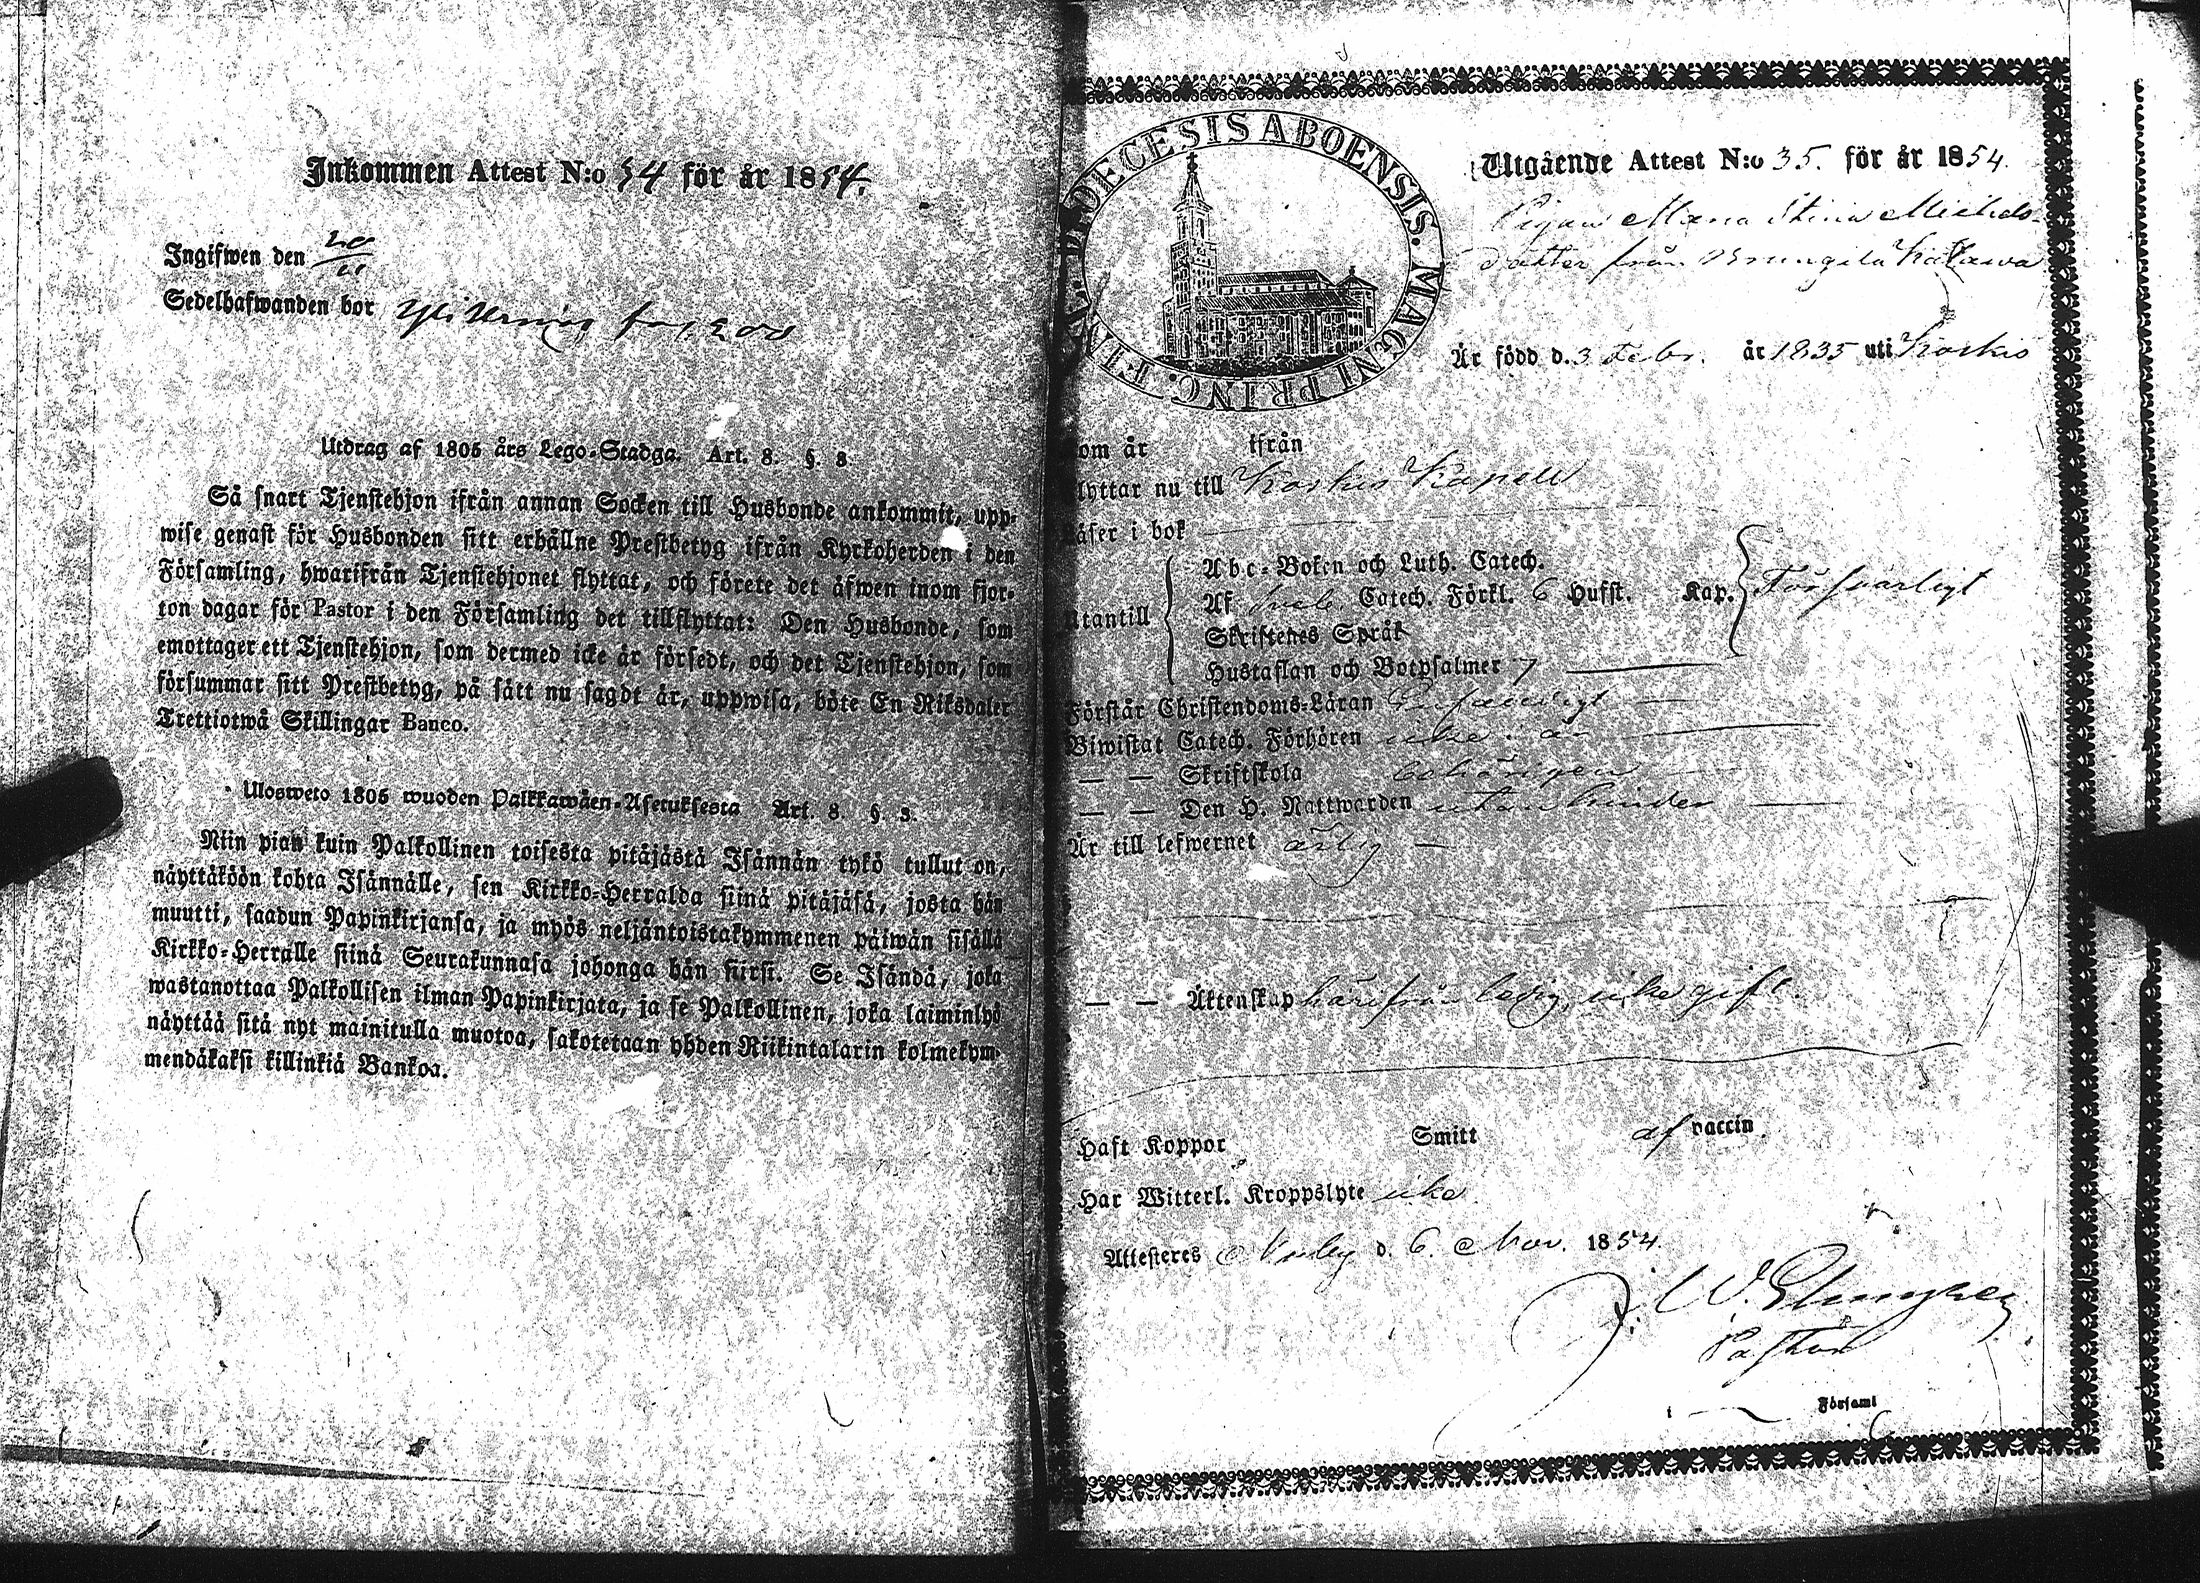 Inkommen Attest N:o 54 för år 1854.
Ingifwen den 20/11
Sedelhafwanden bor
Utdrag af 1805 års Lego-Stadga. Art. 8. §. 3.
Så snart Tjenstehjon ifrån annan Socken till Husbonde ankommit, upp-
wise genast för Husbonden sitt erhållne Prestbetyg ifrån Kyrkoherden i den
Församling, hwarifrån Tjenstehjonet flyttat, och förete det äfwen inom fjor-
ton dagar för Pastor i den Församling det tillflyttat: Den Husbonde, som
emottager ett Tjenstehjon, som dermed icke är försedt, och det Tjenstehjon, som
försummar sitt Prestbetyg, på sätt nu sagdt är, uppwisa, böte En Riksdaler
Trettiotwå Skillingar Banco.
Ulosweto 1805 wuoden Palkkawäen-Asetuksesta Art. 8. §. 3.
Niin pian kuin Palkollinen toisesta pitäjästä Isännän tykö tullut on,
näyttäköön kohta Isännälle, sen Kirkko-Herralda siinä pitäjäsä, josta hän
muutti, saadun Papinkirjansa, ja myös neljäntoistakymmenen päiwän sisällä
Kirkko-Herralle siinä Seurakunnasa johonga hän siirsi. Se Isändä, joka
wastanottaa Palkollisen ilman Papinkirjata, ja se Palkollinen, joka laiminlyö
näyttää sitä nyt mainitulla muotoa, sakotetaan yhden Riikintalarin kolmekym-
mendäkaksi killinkiä Bankoa.
DECESIS ABOENSIS. MAGNI PRINC. FINL.
Utgående Attest N:o 35. för år 1854.
Pigan Maria Stina Michels-
dotter från
Är född d. 3 Febr. år 1835 uti Koskis
om är ifrån
lyttar nu till Koskis Kapell
äser i bok
Abc-Boken och Luth. Catech.
Af Sveb. Catech. Förkl. 6 Hufst. Kap. Försvarligt
tantill
Skriftenes Språk
Hustaflan och Botpsalmer 7
Förstår Christendoms-Läran
Biwistat Catech. Förhören
— — Skriftskola behörigen
— — Den H. Nattwarden utan hinder
Är till lefwernet ärlig
— — Äktenskap härifrån ledig, icke gift.
Haft Koppor Smitt af vaccin
Har Witterl. Kroppslyte icke
Attesteres d. 6. Nov. 1854.
Pastor
Församl